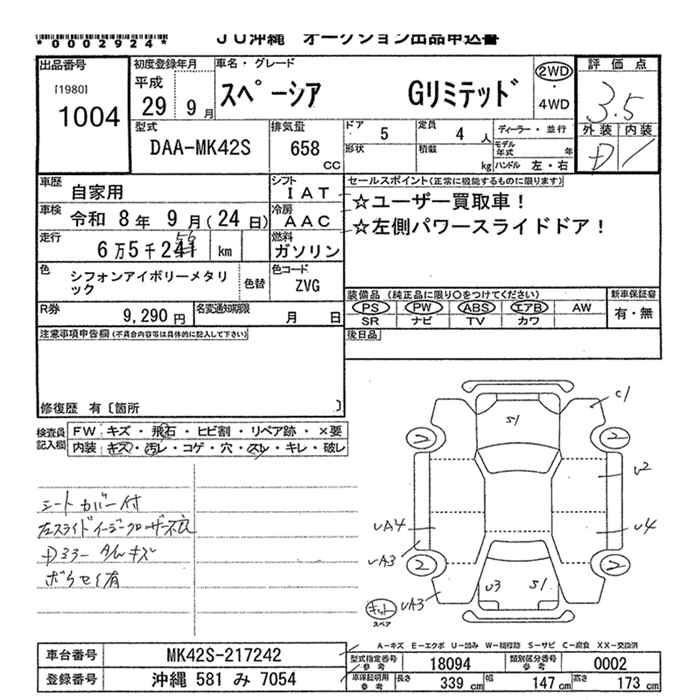 *0002924*
JU沖縄 オークション出品申込書
出品番号
[1980]
1004
初度登録年月
平成
29年 9月
車名・グレード
スペーシア Gリミテッド
2WD
・4WD
評価点
3.5
外装 内装
D
型式
DAA-MK42S
排気量
658
CC
ドア 5
形状
定員 4 人
積載 kg
ディーラー・並行
モデル年式 年
ハンドル 左・右
車歴 自家用
シフト IAT
車検 令和 8年 9月(24日)
冷房 AAC
走行 6万5千241 56 km
燃料 ガソリン
色 シフォンアイボリーメタリック
色替
色コード ZVG
R券 9,290 円
名変通知期限 月 日
セールスポイント(正常に機能するものに限ります)
☆ユーザー買取車!
☆左側パワースライドドア!
装備品 (純正品に限り○をつけてください)
新車保証書
PS PW ABS エアB AW
有・無
SR ナビ TV カワ
後日品
注意事項申告欄(不具合内容等は具体的に記入して下さい)
修復歴 有〔箇所 〕
検査員記入欄
FW キズ・飛石・ヒビ割・リペア跡・×要
内装 キズ・汚レ・コゲ・穴・スレ・キレ・破レ
シートカバー付
D33ー
有
C1
S1
2 2
U2
UA4
U4
UA3
2 2
U3 S1
UA3
キット
スペア
A-キズ E-エクボ U-凹み W-補修跡 S-サビ C-腐食 XX-交換済
車台番号 MK42S-217242
型式指定番号 参考 18094
類別区分番号 参考 0002
登録番号 沖縄 581 み 7054
車体証明用 参考
長さ 339 cm
幅 147 cm
高さ 173 cm